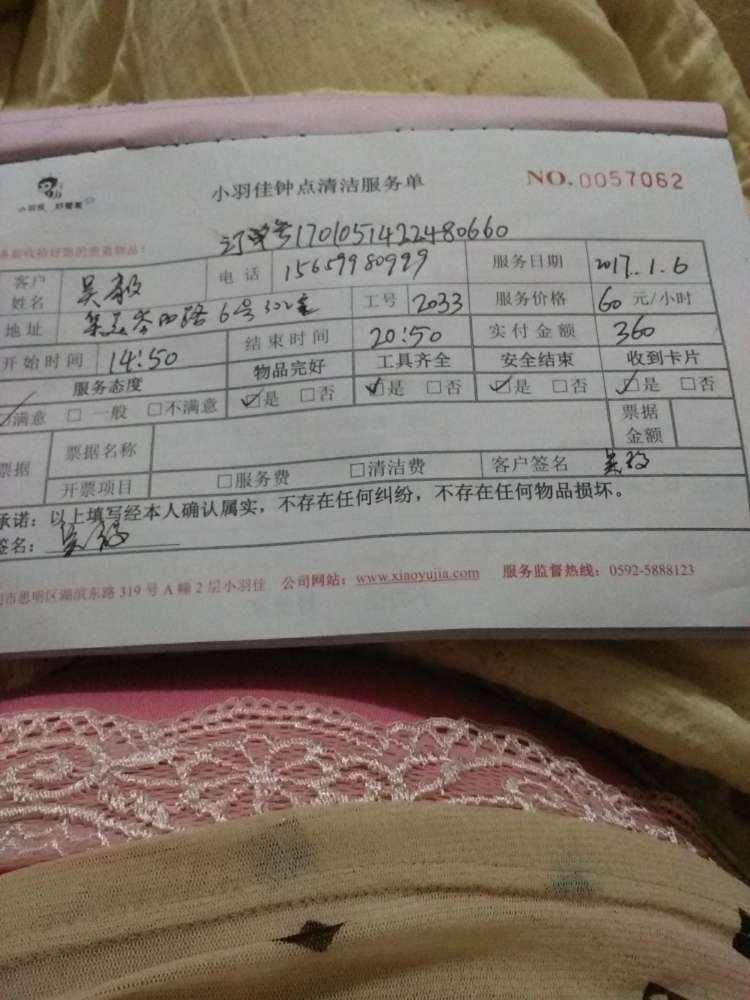 小羽佳 好管家
小羽佳钟点清洁服务单 NO.0057062
订单号1701051422480660
收拾好您的贵重物品:
客户姓名 吴毅 电话 15659980929 服务日期 2017.1.6
地址 6号302室 工号 2033 服务价格 60 元/小时
开始时间 14:50 结束时间 20:50 实付金额 360
服务态度 物品完好 工具齐全 安全结束 收到卡片
☑满意 □一般 □不满意 ☑是 □否 ☑是 □否 ☑是 □否 ☑是 □否
票据 票据名称 票据金额
开票项目 □服务费 □清洁费 客户签名 吴毅
承诺:以上填写经本人确认属实,不存在任何纠纷,不存在任何物品损坏。
签名: 吴毅
市思明区湖滨东路319号A幢2层小羽佳 公司网站:www.xiaoyujia.com 服务监督热线:0592-5888123